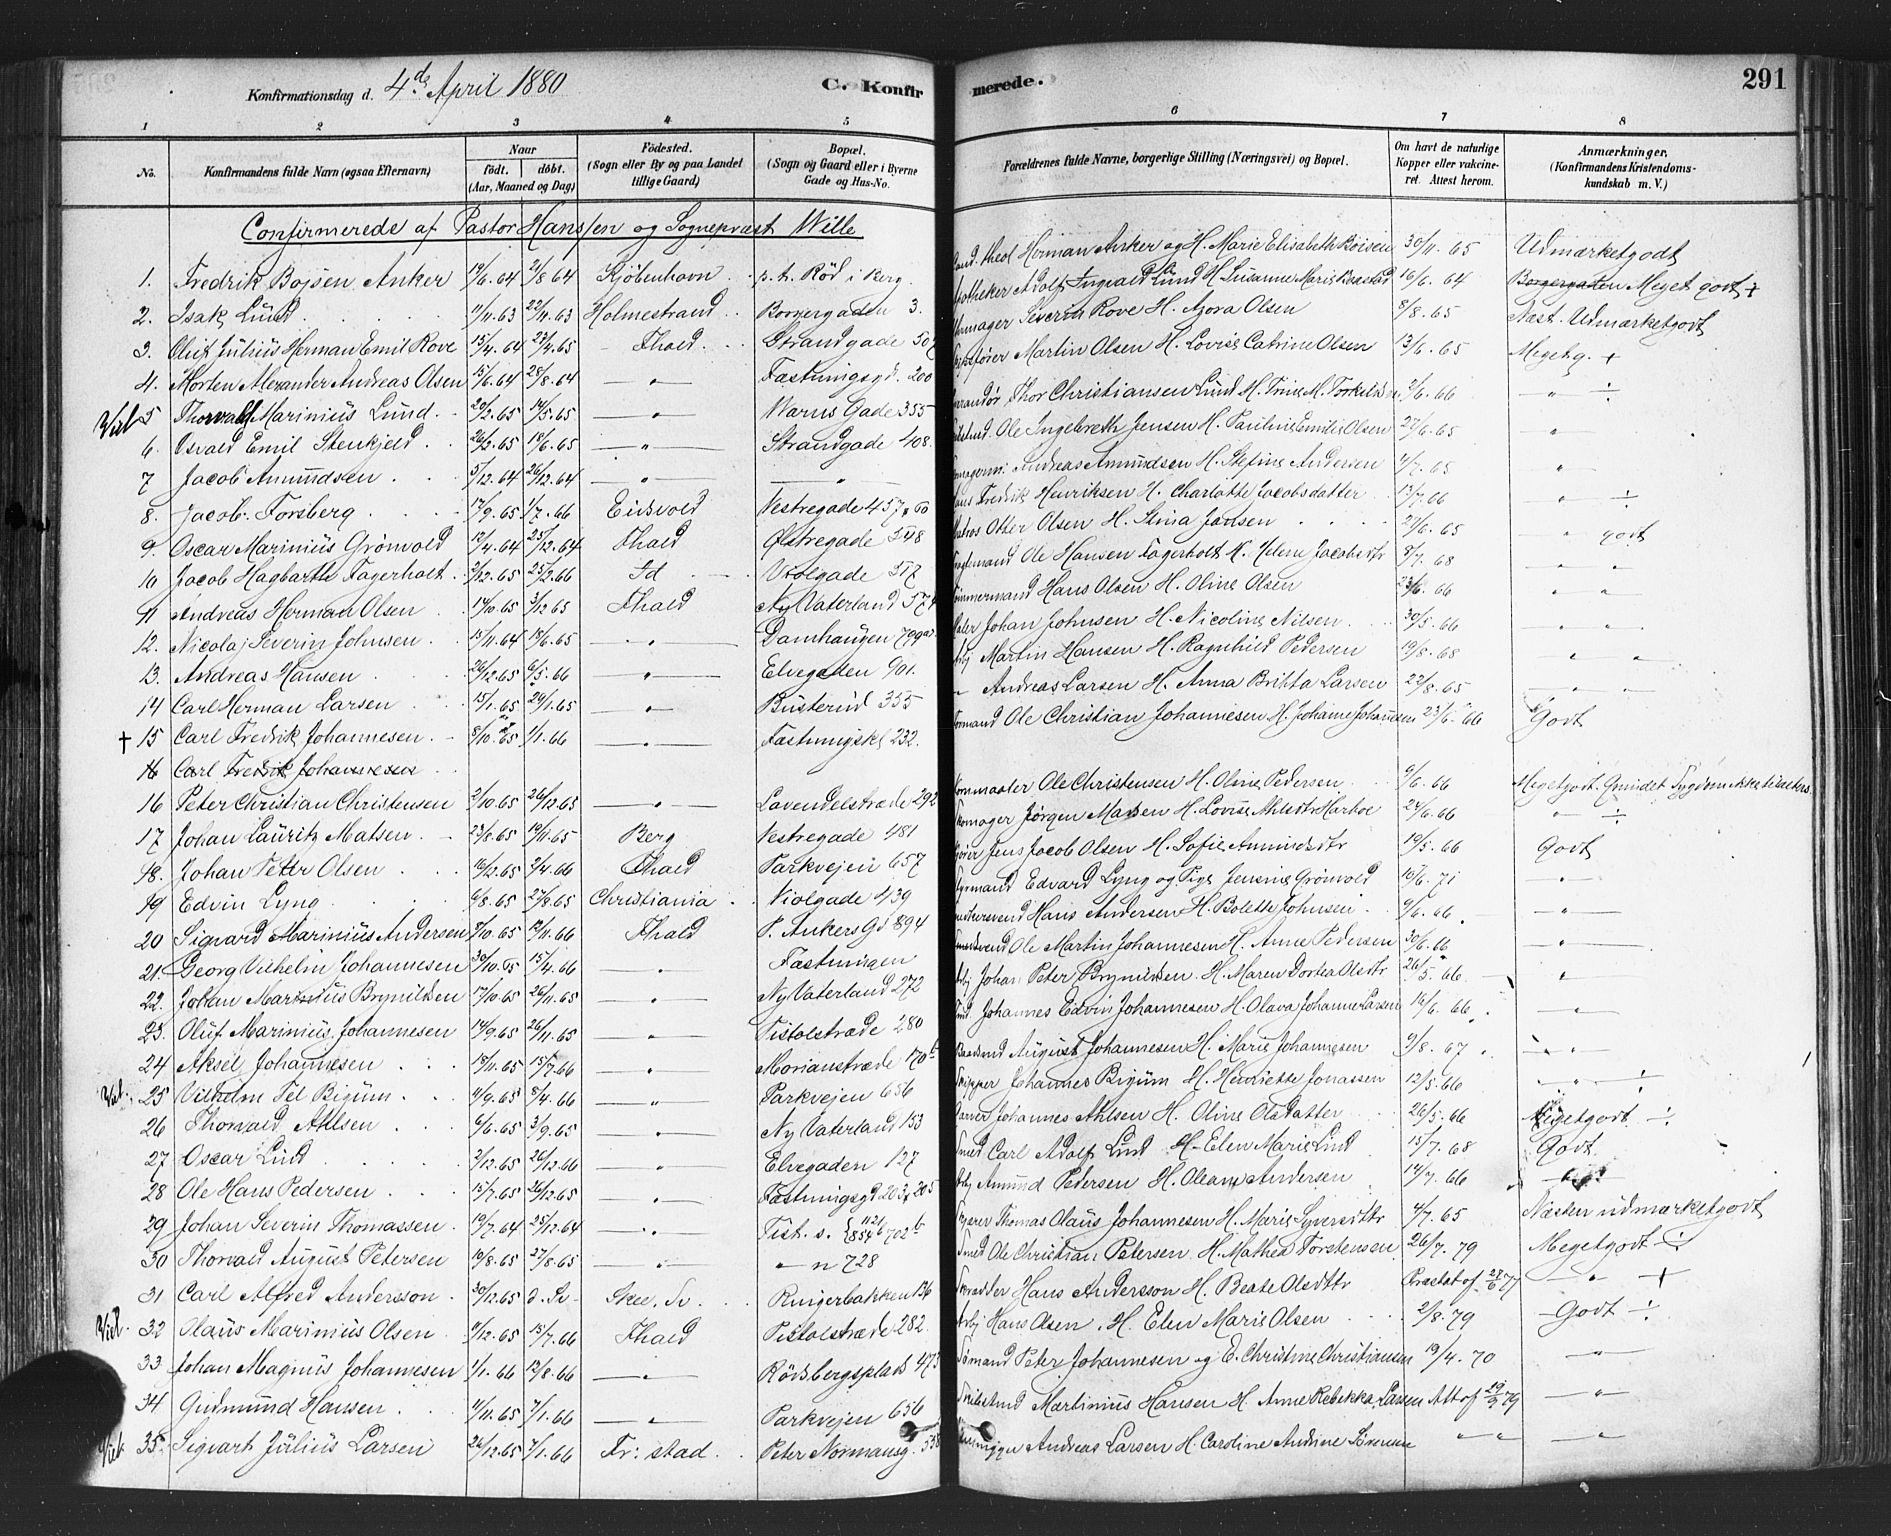 Konfirmationsdag d. 4de April 1880 C. Konfirmerede. 291
1 2 3 4 5 6 7 8
No. Konfirmandens fulde Navn (ogsaa Efternavn) Naar født. døbt. (Aar, Maaned og Dag) Fødested. (Sogn eller By og paa Landet tillige Gaard) Bopæl. (Sogn og Gaard eller i Byerne Gade og Hus-No. Forældrenes fulde Navne, borgerlige Stilling (Næringsvei) og Bopæl. Om havt de naturlige Kopper eller vakcineret. Attest herom. Anmærkninger. (Konfirmandens Kristendomskundskab m. V.)
Confirmerede af Pastor Hanssen og Sognepræst Wille
1. Fredrik Bojsen Anker 19/6.64 2/8 64 Kjöbenhavn p. t. Röd i Berg Cand. theol Herman Anker og H. Marie Elisabeth Böisen 30/11. 65 Udmærketgodt
2. Isak Lund 11/11.63 22/11.63 Holmestrand Borgergaden 3. Apotheker Adolf Ingvald Lund H. Susanne Marie 16/6. 64 Borgergaden Meget godt +
3. Oluf Julius Herman Emil Rove 15/4.64 23/4.65 Fhald Strandgade 507 Severin Rove H. Azora Olsen 8/8. 65 Næst. Udmærketgodt
4. Morten Alexander Andreas Olsen 15/6.64 28/8.64 — " — Fæstningsgd. 200 Martin Olsen H. Lovise Catrine Olsen 13/6. 65 Megetg. +
5 Thorvald Marinius Lund 20/2.65 14/5.65 — " — Warns Gade 355 Thor Christiansen Lund H. Trine M. Torkildsen 2/6. 66 " ÷
6. Osvald Emil Stenkjeld 26/2.65 18/6.65 — " — Strandgade 408. Ole Ingebreth Jensen H. Pauline Emilie Olsen 27/6.65 — " —
7 Jacob Amundsen 5/12.64 26/12.64 " — " — Andreas Amundsen H. Stefine Andersen 4/7. 65 — " —
8. Jacob Forsberg 17/9.65 1/7.66 Eidsvold Vestregade 457 Fredrik Henriksen H. Charlotte Jacobsdatter 13/7 66 — " — ÷
9. Oscar Marinius Grönvold 12/4.64 25/12.64 Fhald Østregade 548 Matros Otter Olsen H. Stina Jansen 27/6. 65 " godt
10 Jacob Hagbarth Fagerholt 2/12.65 25/2.66 Id Violgade 517 Ole Hansen Fagerholt H. Helene Jacobsdtr 8/7. 68 " "
11 Andreas Herman Olsen 14/10.65 3/12 65 Fhald Ny Vaterland 574 Tömmermand Hans Olsen H. Oline Olsen 23/6. 66 " "
12. Nicolaj Severin Johnsen 15/11.64 18/6.65 " Damhaugen 709 Maler Johan Johnsen H. Nicoline Nilsen 30/5. 66 " "
13. Andreas Hansen 26/12.65 6/5.66 — " — Elvegaden 901. Arbj Martin Hansen H. Ragnhild Pedersen 19/8. 68 " "
14 Carl Herman Larsen 15/1.65 24/1.65 — " — Busterud 355 " Andreas Larsen H. Anna Britta Larsen 22/8. 65 — " — " —
† 15 Carl Fredrik Johannesen 8/10.65 1/1.66 — " — Fæstningskl 232. Ole Christian Johannesen H. Johanne Johannesen 23/6. 66 Godt
16 Carl Fredrik Johannesen
16 Peter Christian Christensen 2/10.65 26/12.65 — " — Lavendelstræde 292 Ole Christensen H. Oline Pedersen 9/6. 66 Megetgodt.
17 Johan Lauritz Matsen 23/8.65 19/11.65 Berg Vestregade 481 Skomager Jörgen Madsen H. Lovise 24/6.66 " ÷
18. Johan Peter Olsen 16/12.65 2/4.66 Fhald Parkvejen 657 Jens Jacob Olsen H. Sofie Amundsdtr 19/5. 66 Godt
19 Edvin Lyng 6/8.65 27/8.65 Christiania Violgade 439 Edvard Lyng og Pige Jensine Grönvold 15/6. 71 — " —
20 Sigvard Marinius Andersen 7/10.65 12/11.66 Fhald P. Ankers Gd 894 Hans Andersen H. Bolette Johnsen 9/6. 66. — " —
21. Georg Vilhelm Johannesen 30/10.65 15/4.66 " Fæstningen Ole Martin Johannesen H. Anne Pedersen 30/6.66 — " —
22. Johan Marinius Brynildsen 17/10.65 26/11.65 — " — Ny Vaterland 272 Arbj Johan Peter Brynildsen H. Maren Dortea Olsdtr 26/5. 66 "
23. Oluf Marinius Johannesen 14/9.65 26/11.65 " Pistolstræde 280 Johannes Edvin Johannesen H. Olava Johanne Larsen 16/6. 66 — " —
24 Aksel Johannesen 18/11.65 15/7.66 " Morianstræde 170b August Johannesen H. Marie Johannesen 9/8. 67 — " —
25 Vilhelm Bigum 11/9.65 8/4.66 — " — Parkvejen 656 Skipper Johannes Bigum H. Henriette Jonassen 12/5.66 — " — ÷
26 Thorvald Ahlsen 6/6.65 3/9.65 " Ny Vaterland 153 Johannes Ahlsen H. Oline Olsdatter 26/5.66 Megetgodt ÷
27 Oscar Lund 2/12.65 26/12.66 — " — Elvegaden 127 Smed Carl Adolf Lund H. Elen Marie Lund 15/7. 68 Godt
28 Ole Hans Pedersen 15/7.65 26/12.65 " Fæstningsgd 203, 205 Arbj Amund Pedersen H. Oleane Andersen 14/7. 66
29 Johan Severin Thomassen 19/7.64 25/12.64 " Tist. s. 1121 854b 702b Thomas Olaus Johannesen H. Marie Syversdtr 4/7. 65 Næsten udmærketgodt
30 Thorvald August Petersen 19/8.65 27/8.65 — " — — " — 728 Smed Ole Christian Petersen H. Mathea Torstensen 26/7. 79 Megetgodt ÷
31 Carl Alfred Andersson 30/12.65 d. Sv Skee. Sv. Ringerbakken 136 Skrædder Hans Andersson H. Beate Olsdttr Præstat af 27 — " — +
32 Olaus Marinius Olsen 11/12.65 15/7.66 Fhald Pistolstræde 282 Arbj Hans Olsen. H. Elen Marie Olsen 2/8.79 Godt ÷
33 Johan Magnus Johannesen 1/1.66 12/8.66 — " — Rödsbergsplads 473 Sömand Peter Johannesen og E. Christine Christiansen 19/4. 70 — " —
34 Gudmund Hansen 11/11.65 7/1.66 — " — Parkvejen 656 Martinius Hansen H. Anne Rebekka Larsen Att af 79 — " —
35. Sigvart Julius Larsen 24/12.65 7/1.66 Fr: stad Peter Normansg. 538 Andreas Larsen H. Caroline Andrine Sörensen " " — " —